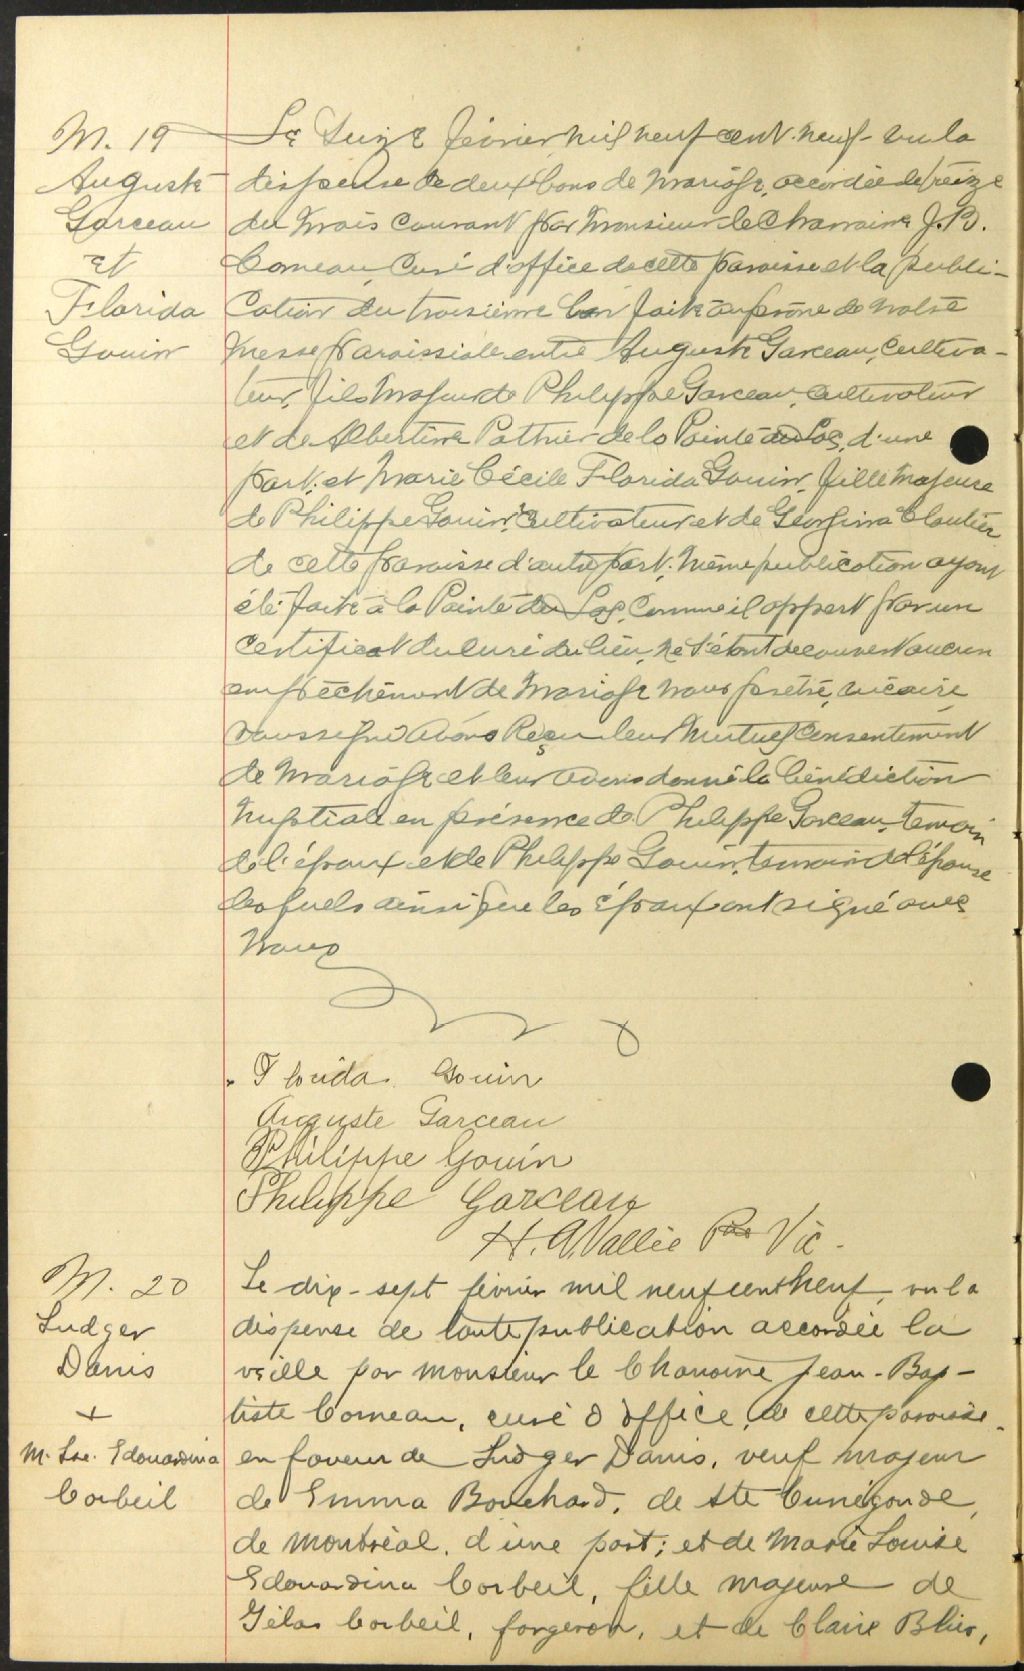 M. 19
Auguste
Garceau
et
Florida
Gouin
Le Seize février mil neuf cent neuf vu la
dispense de deux bans de mariage, accordée le treize
du mois courant par Monsieur le Chanoine J. B.
Comeau, Curé d'office de cette paroisse et la publi-
cation du troisième ban faite au prône de notre
messe paroissiale entre Auguste Garceau, cultiva-
teur, fils majeur de Philippe Garceau, cultivateur
et de Albertine Pothier de la Pointe du Lac, d'une
part; et Marie Cécile Florida Gouin, fille majeure
de Philippe Gouin, cultivateur et de Georgina Cloutier
de cette paroisse d'autre part; même publication ayant
été faite à la Pointe du Lac, comme il appert par un
certificat du curé du lieu, ne s'étant découvert aucun
empêchement de mariage nous prêtre, vicaire,
soussigné avons reçu leur mutuel consentement
de mariage et leur avons donné la bénédiction
nuptiale en présence de Philippe Garceau, temoin
de l'époux et de Philippe Gouin, temoin de l'épouse
lesquels ainsi que les époux ont signé avec
nous
Florida Gouin
Auguste Garceau
Philippe Gouin
Philippe Garceau
H. A. Vallée Ptre Vic.
M. 20
Ludger
Danis
+
M. Lse. Edouardina
Corbeil
Le dix-sept février mil neuf cent neuf, vu la
dispense de toute publication accordée la
veille par monsieur le Chanoine Jean-Bap-
tiste Comeau, curé d'office, de cette paroisse
en faveur de Ludger Danis, veuf majeur
de Emma Bouchard, de Ste Cunégonde,
de Montréal, d'une part; et de Marie Louise
Edouardina Corbeil, fille majeure de
Gélas Corbeil, forgeron, et de Claire